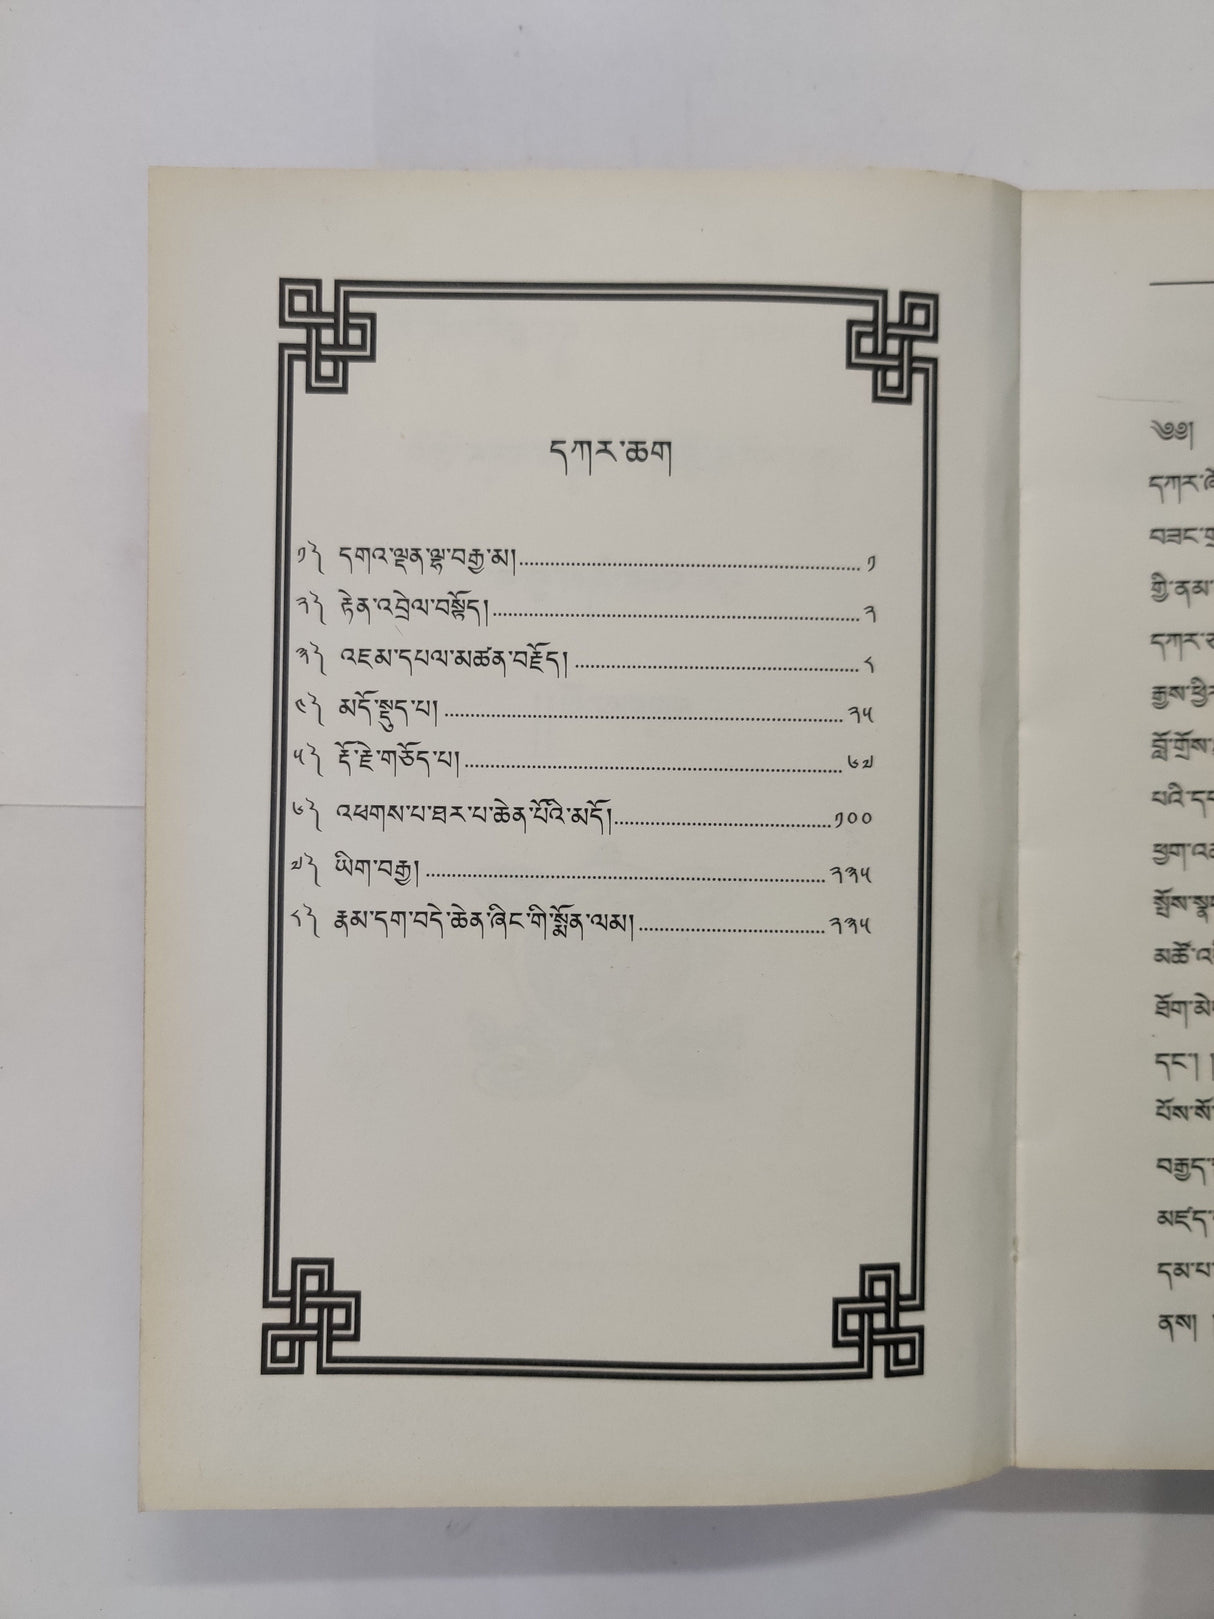 དཀར་ཆག
༡༽ དགའ་ལྡན་ལྷ་བརྒྱ་མ།.......... ༡
༢༽ རྟེན་འབྲེལ་བསྟོད།.......... ༢
༣༽ འཇམ་དཔལ་མཚན་བརྗོད།.......... ༨
༤༽ མདོ་སྡུད་པ།.......... ༢༥
༥༽ རྡོ་རྗེ་གཅོད་པ།.......... ༦༧
༦༽ འཕགས་པ་ཐར་པ་ཆེན་པོའི་མདོ།..........༡༠༠
༧༽ ཡིག་བརྒྱ།.......... ༢༣༥
༨༽ རྣམ་དག་བདེ་ཆེན་ཞིང་གི་སྨོན་ལམ།.......... ༢༣༥
༄༅།
དཀར་
བཟང་
གྱི་ནམ་
དཀར་
རྒྱས་
བློ་གྲོས་
པའི་
ཕྱག་
སྤྲོས་
མཚོ་
ཐོག་
དང་།
པོས་
བརྒྱད་
མཛད་
དམ་པ་
ནས།